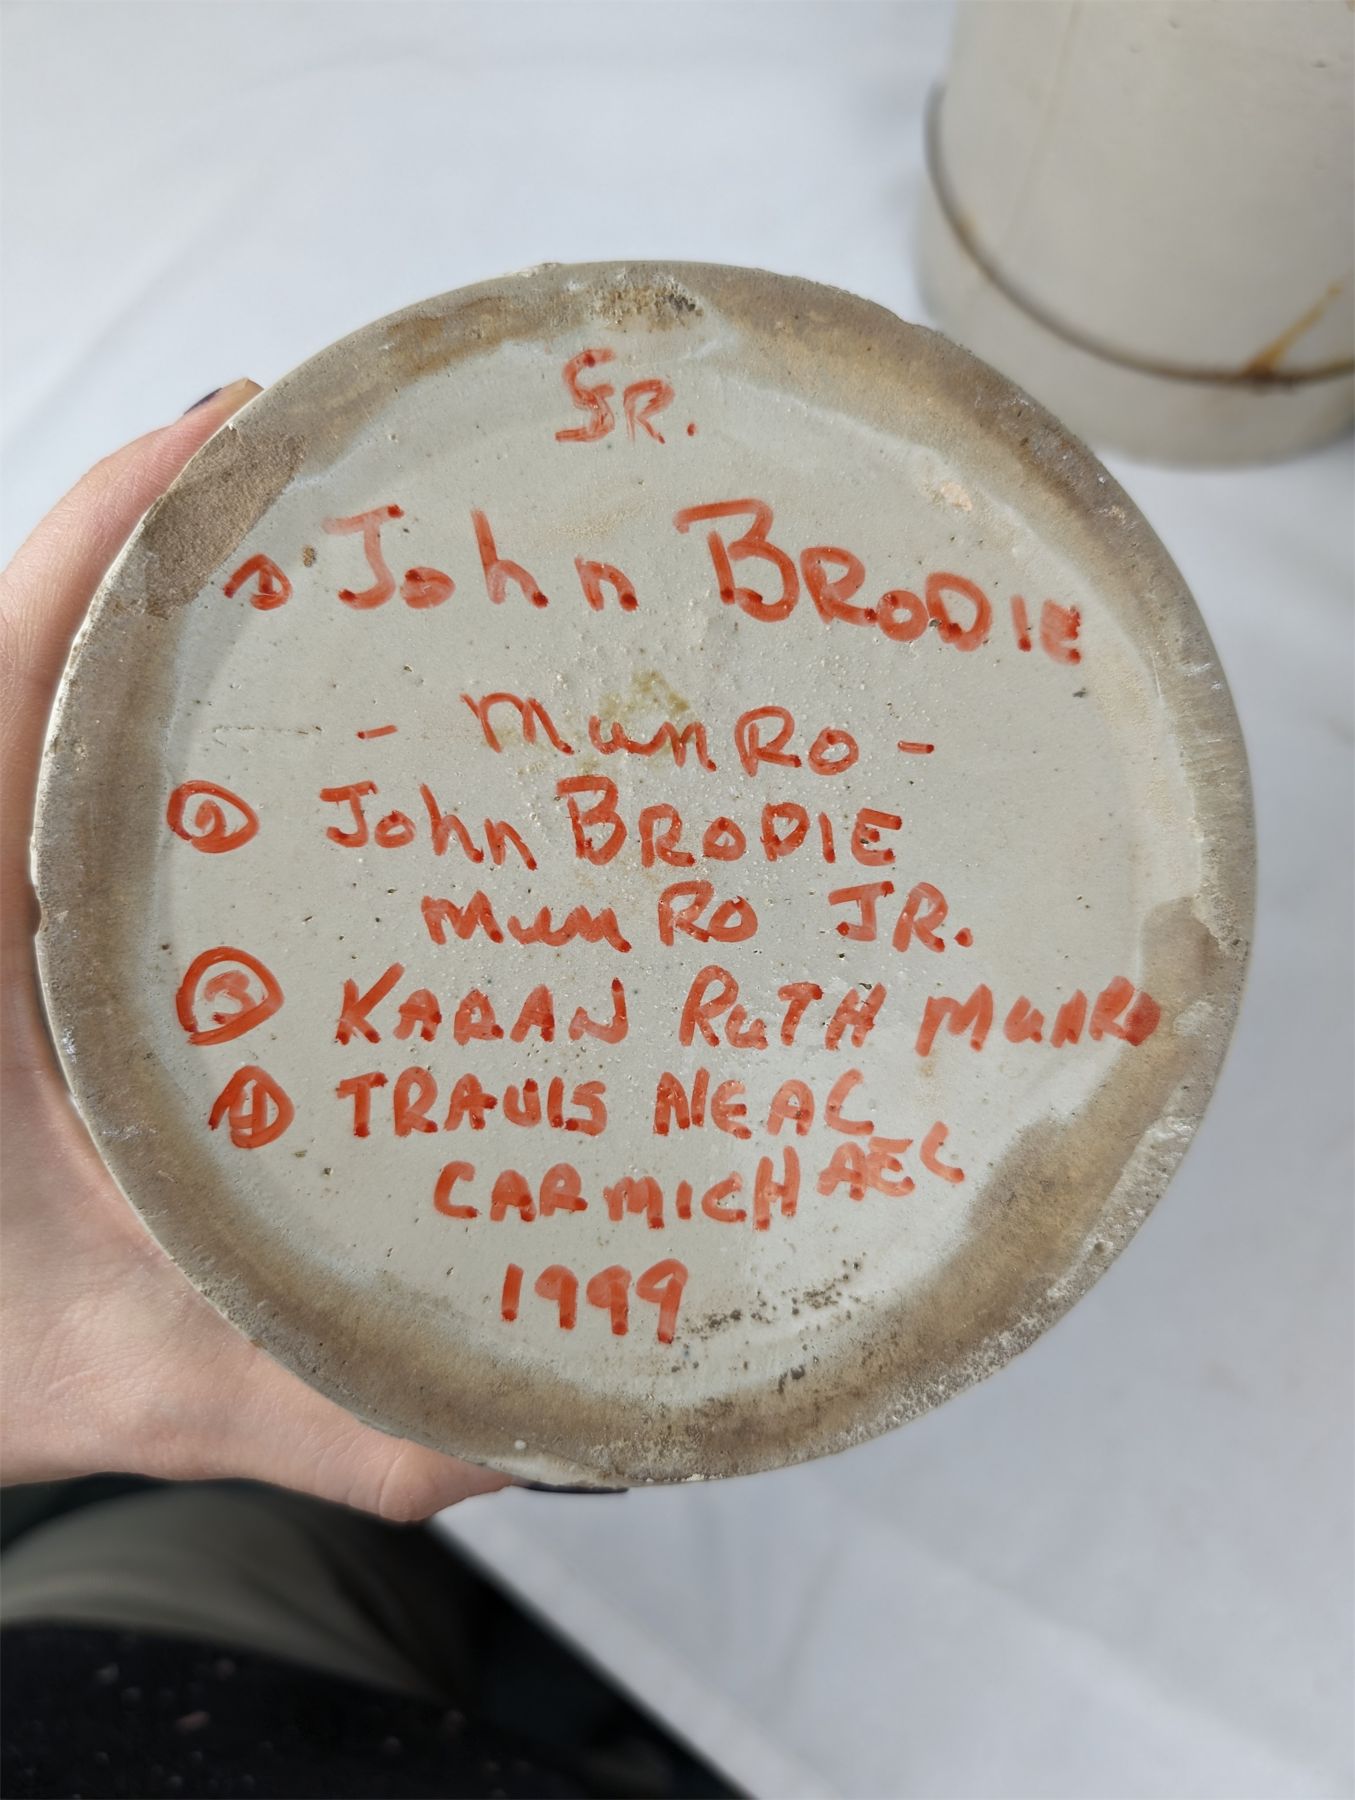 SR.
① John BRODIE
- MunRo -
② John BRODIE
MunRo JR.
③ KARAN RuTH MunRo
④ TRAVIS NEAL
CARMICHAEL
1999